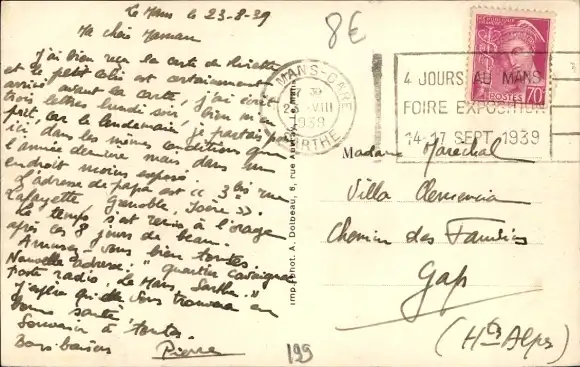 Le Mans le 23-8-39
8€
Ma chère Maman
J'ai bien reçu la carte de Ginette
et le petit colis est certainement
arrivé avant la carte, j'ai écrit
trois lettres lundi soir, bien m'en
prit, car le lendemain, je partais
ici, dans les mêmes conditions que
l'année dernière mais dans un
endroit moins exposé.
L'adresse de papa est << 3 bis rue
Lafayette Grenoble, Isère >>.
Le temps s'est remis à l'orage
après ces 8 jours de beau.
Amusez vous bien toutes.
Nouvelle adresse: " quartier Cavaignac
poste radio, Le Mans, Sarthe."
J'espère qu'elle vous trouvera en
bonne santé
Souvenir à toutes.
Bons baisers
Pierre
Imp. Phot. A. Dolbeau, 8, rue
LE MANS-GARE
23 -VIII
1939
SARTHE
4 JOURS AU MANS
FOIRE EXPOSITION
14-17 SEPT. 1939
RÉPUBLIQUE FRANÇAISE
POSTES 70c
Madame Maréchal
Villa Clemencia
Chemin des Fauvins
Gap
(Htes Alpes)
199